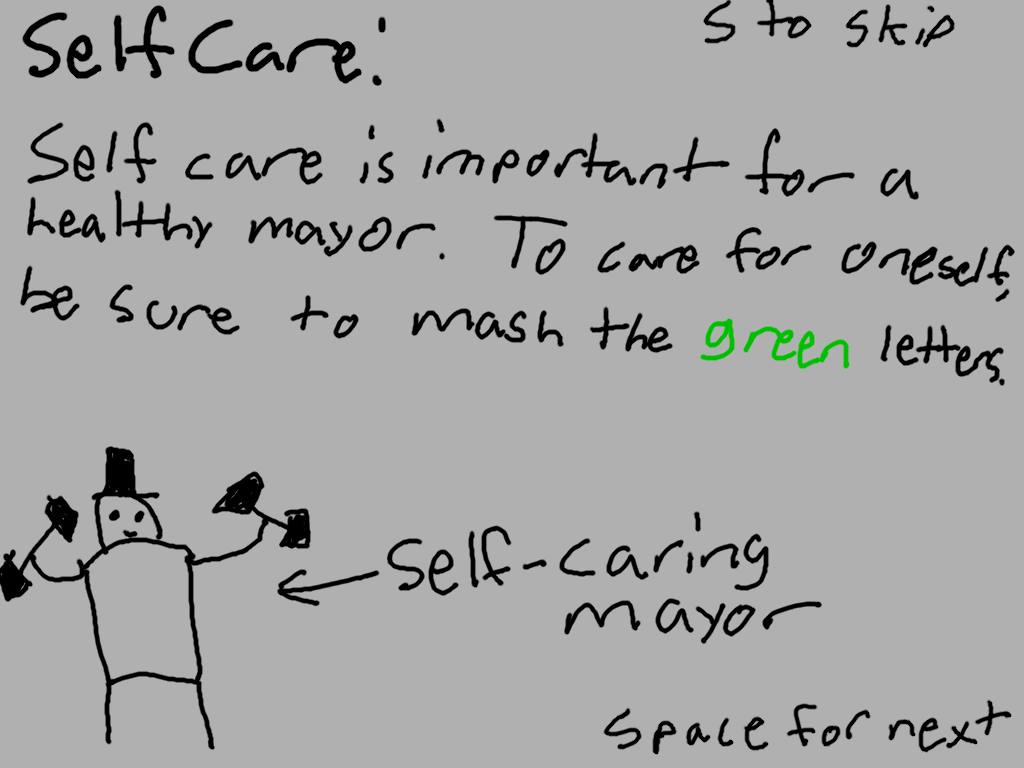 Self Care:
S to skip
Self care is important for a
healthy mayor. To care for oneself,
be sure to mash the green letters.
Self-caring
mayor
space for next